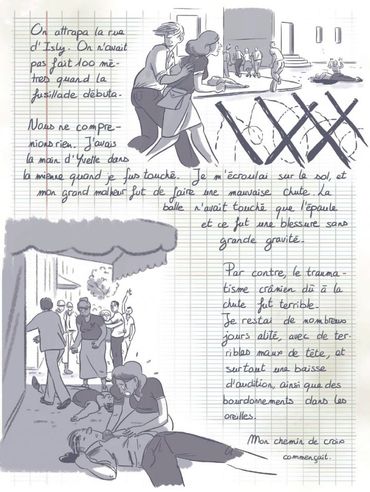 On attrapa la rue
d'Isly. On n'avait
pas fait 100 mè-
tres quand la
fusillade débuta.
Nous ne compre-
nions rien. J'avais
la main d'Yvette dans
la mienne quand je fus touché. Je m'écroulai sur le sol, et
mon grand malheur fut de faire une mauvaise chute. La
balle n'avait touché que l'épaule
et ce fut une blessure sans
grande gravité.
Par contre, le trauma-
tisme crânien dû à la
chute fut terrible.
Je restai de nombreux
jours alité, avec de ter-
ribles maux de tête, et
surtout une baisse
d'audition, ainsi que des
bourdonnements dans les
oreilles.
Mon chemin de croix
commençait.